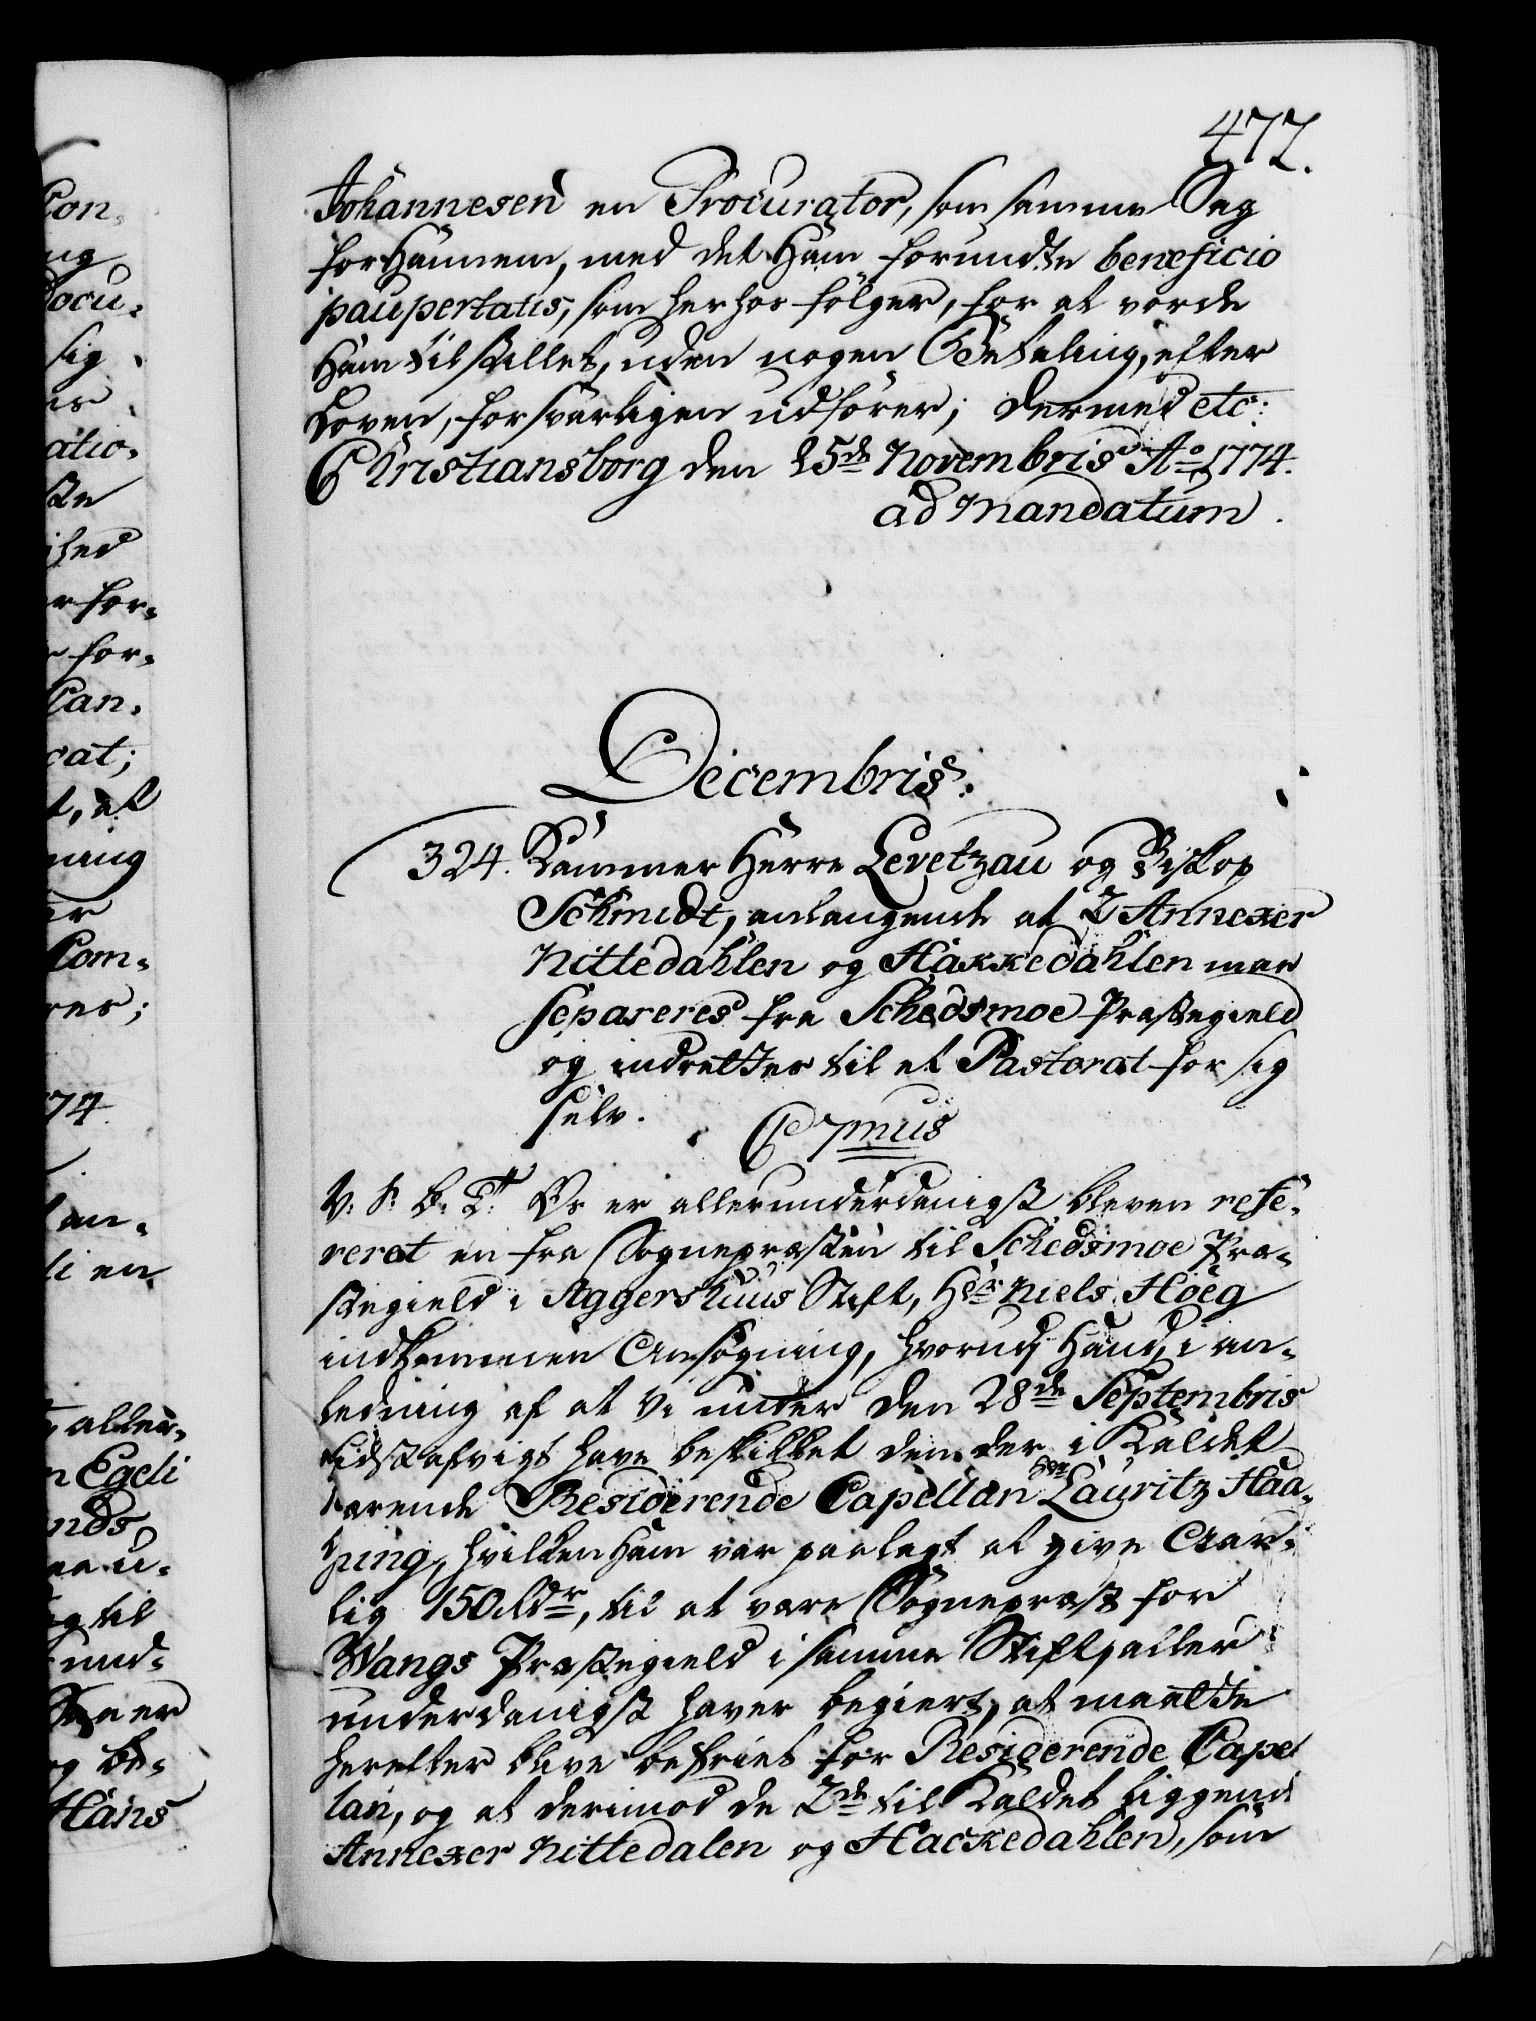 477.
Johannesen en Procurator, som samme Sag
for hannem, med det Ham forundte beneficio
paupertatis, som herhos følger, for at vorde
Ham tilstillet, uden nogen Betaling, efter
Loven, forsvarligen udfører; dermed etc:
Christiansborg den 25de Novembris Ao 1774.
ad Mandatum.
Decembris:
324. Kammer Herre Levetzau og Biskop
Schmidt, anlangende at 2 Annexer
Nittedahlen og Hakkedahlen maae
separeres fra Schedsmoe Præstegield
og indrettes til et Pastorat for sig
selv.
V: S: B: T: Os er allerunderdanigst bleven refe-
reret en fra Sognepræsten til Schedsmoe Præ-
stegield i Aggershuus Stift, Hr Niels Høeg
indkommen Ansøgning, hvorudj Hand, i an-
ledning af at Vi under den 28de Septembris
sidst afvigt have beskikket den der i Kaldet
værende Residerende Capellan Hr Lauritz Haa-
ning, hvilken Ham var paalagt at give Aar-
lig 150 Rdr, til at være Sognepræst for
Wangs Præstegield i samme Stift, aller-
underdanigst haver begiert, at maatte
herefter blive befriet for Residerende Capel
lan, og at derimod de 2de til Kaldet liggende
Annexer Nittedalen og Hackedahlen, som
Con-
ocu-
sig
atio-
for-
for-
Can-
cat;
t, at
ning
Com-
rer;
74
an-
li en
aller-
n Egeli
nds
og til
und-
og be-
Hans